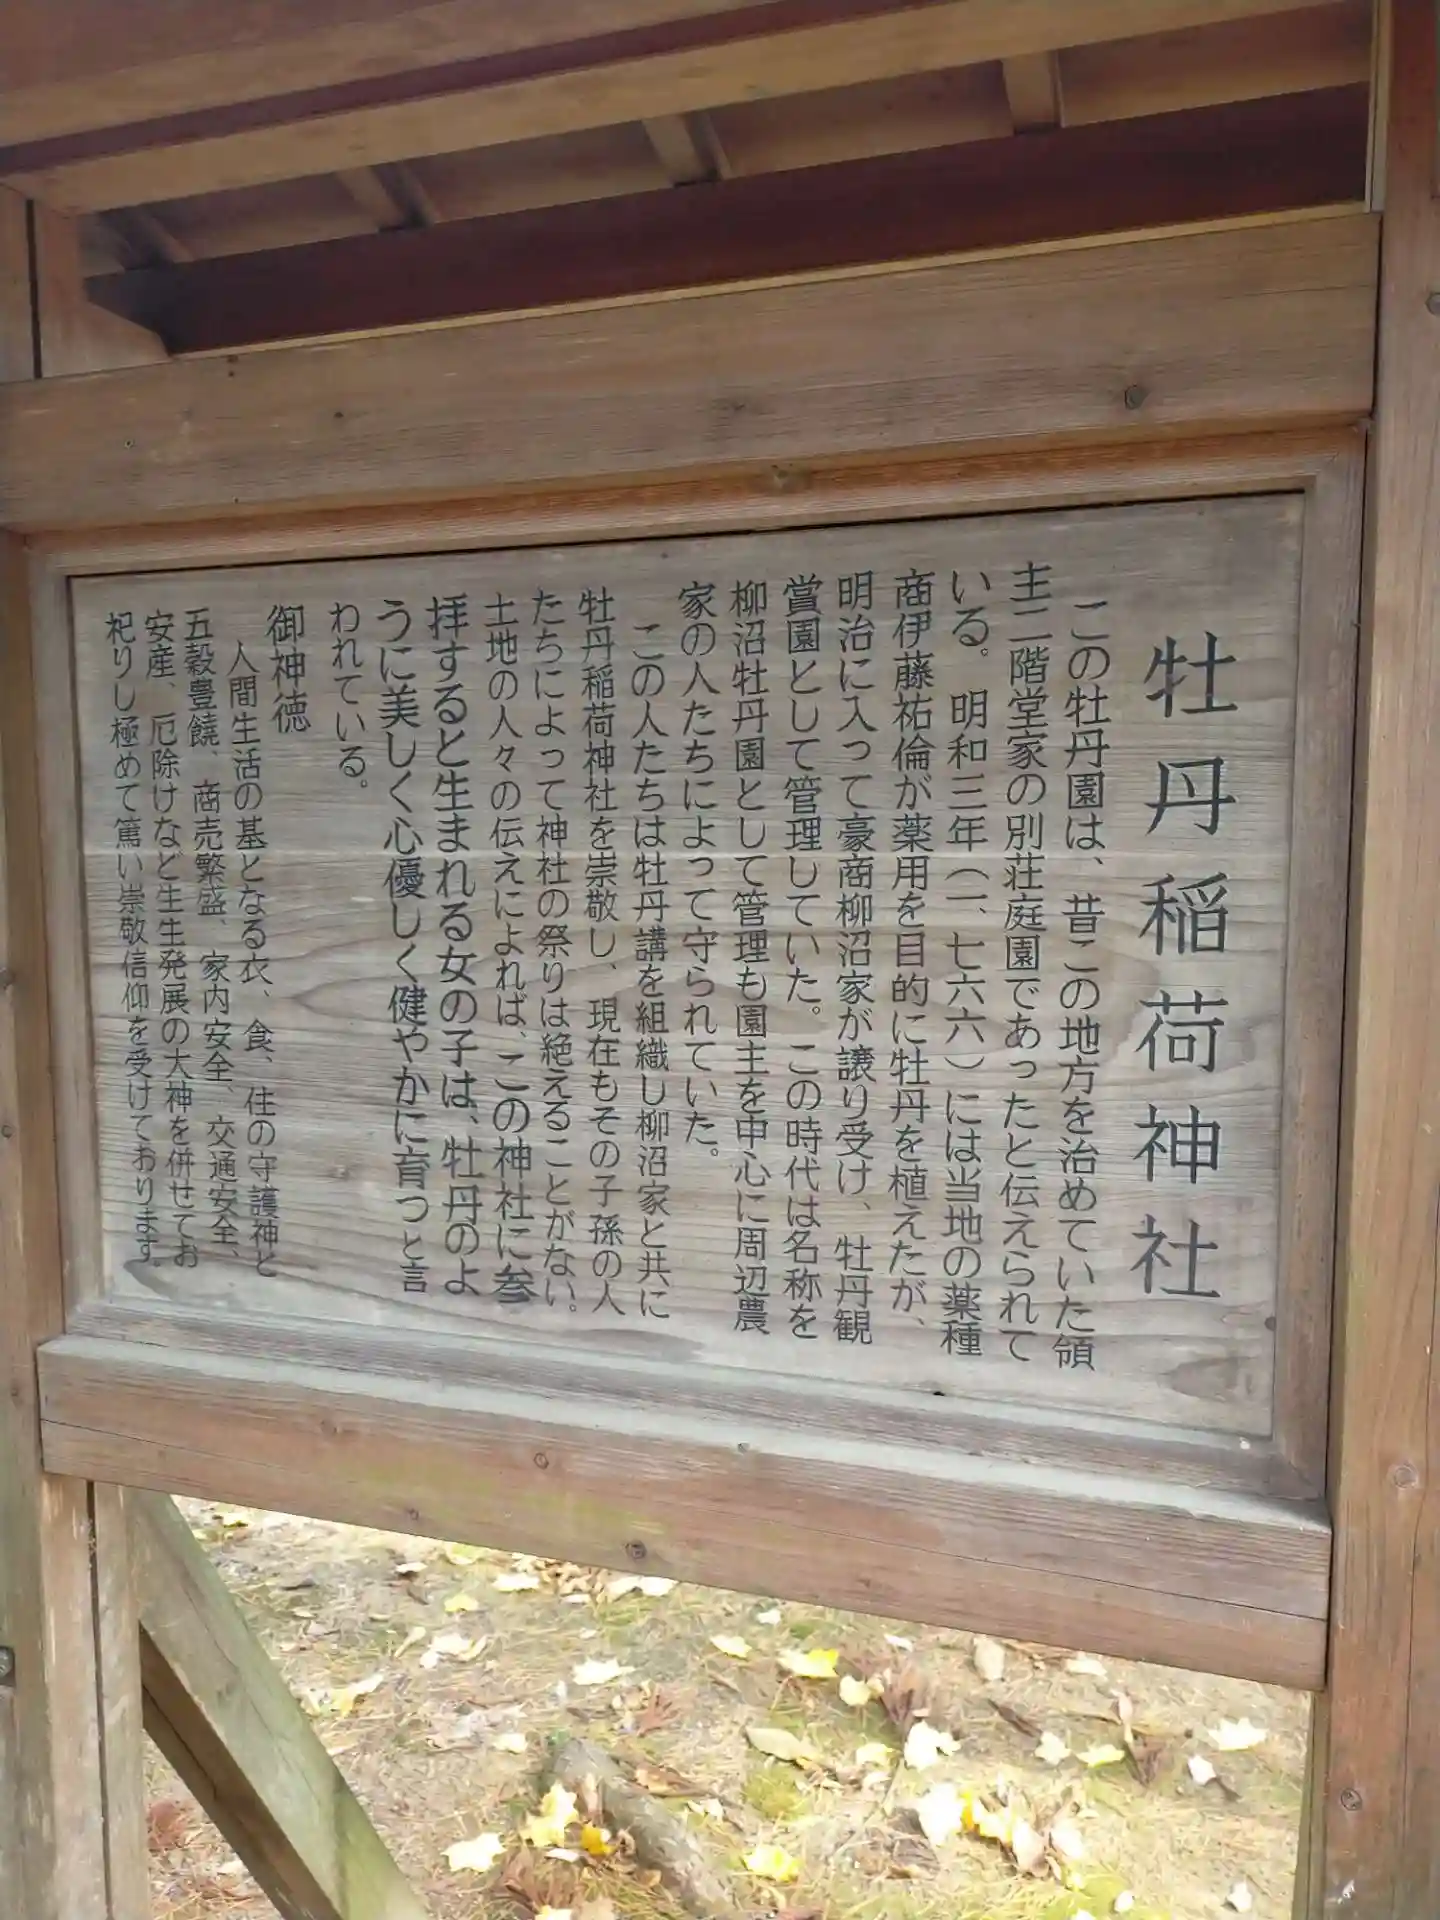 牡丹稲荷神社
この牡丹園は、昔この地方を治めていた領
主二階堂家の別荘庭園であったと伝えられて
いる。明和三年（一、七六六）には当地の薬種
商伊藤祐倫が薬用を目的に牡丹を植えたが、
明治に入って豪商柳沼家が譲り受け、牡丹観
賞園として管理していた。この時代は名称を
柳沼牡丹園として管理も園主を中心に周辺農
家の人たちによって守られていた。
この人たちは牡丹講を組織し柳沼家と共に
牡丹稲荷神社を崇敬し、現在もその子孫の人
たちによって神社の祭りは絶えることがない。
土地の人々の伝えによれば、この神社に参
拝すると生まれる女の子は、牡丹のよ
うに美しく心優しく健やかに育つと言
われている。
御神徳
人間生活の基となる衣、食、住の守護神と
五穀豊饒、商売繁盛、家内安全、交通安全、
安産、厄除けなど生生発展の大神を併せてお
祀りし極めて篤い崇敬信仰を受けております。